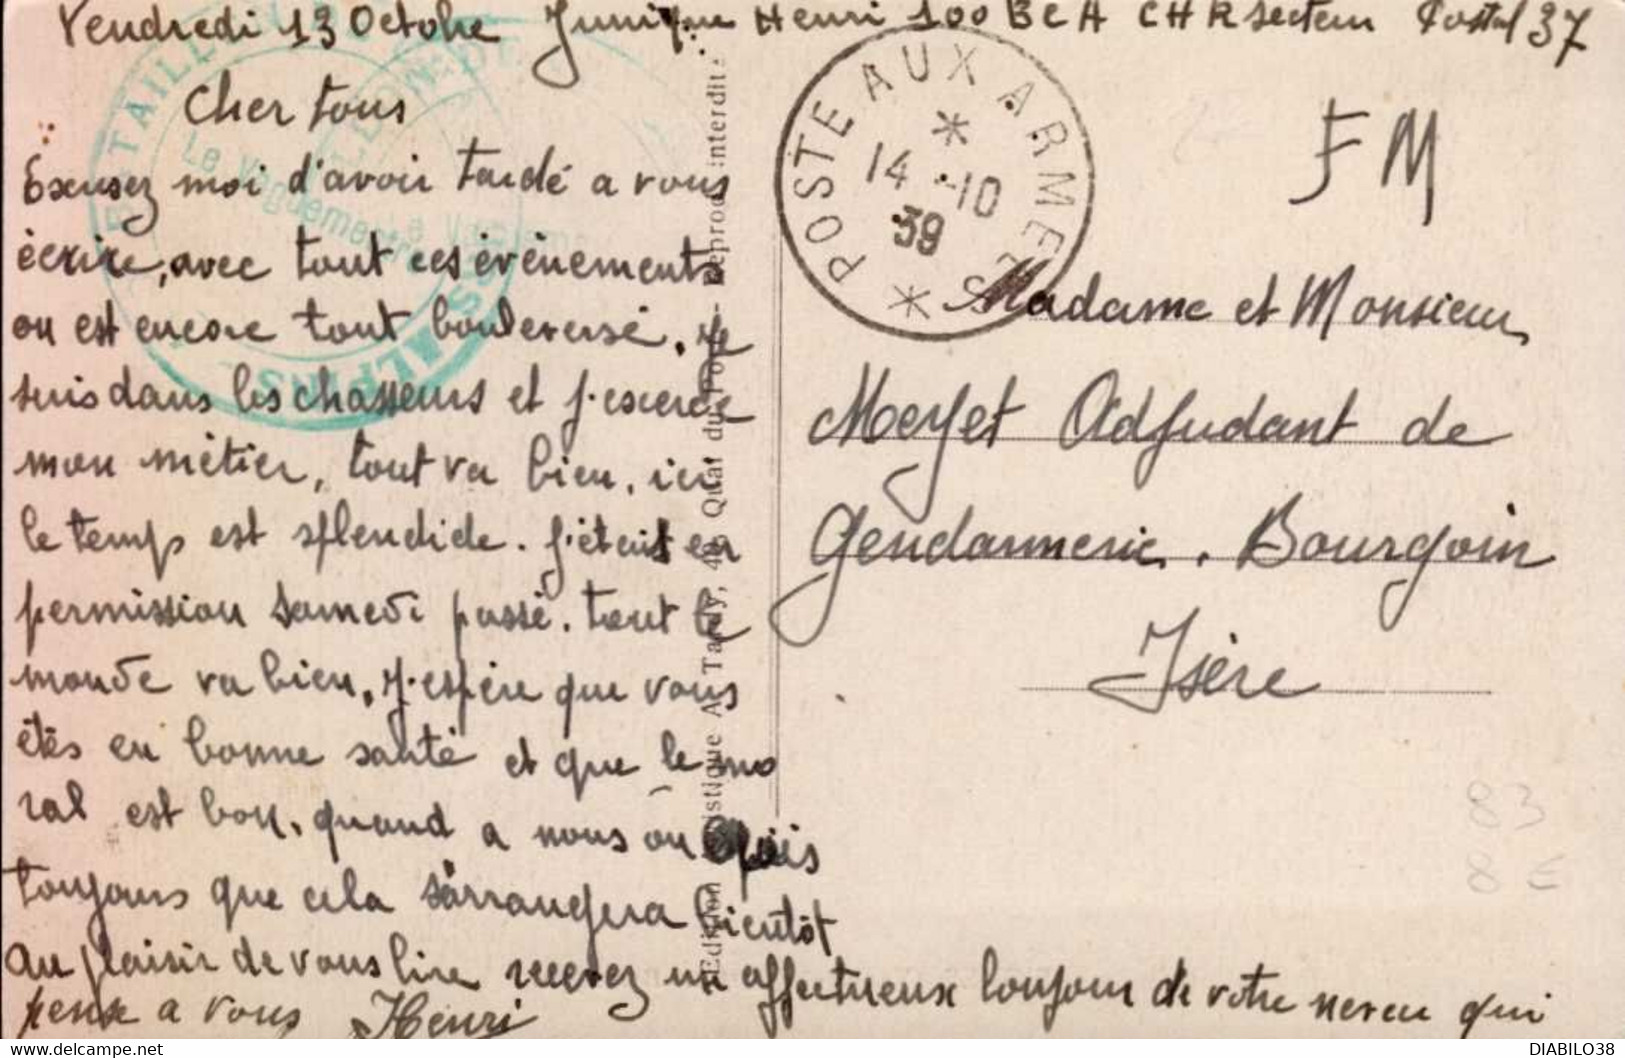 Vendredi 13 Octobre Junique Henri 100 BCA CHR secteur Postal 37
Cher tous
Excusez moi d'avoir tardé a vous
écrire, avec tout ces évènements
on est encore tout bouleversé. Je
suis dans les chasseurs et j'exerce
mon métier, tout va bien, ici
le temps est splendide. j'étais en
permission samedi passé. tout le
monde va bien, j'espère que vous
êtes en bonne santé et que le mo
ral est bon. quand a nous on
toujours que cela s'arrangera bientôt
au plaisir de vous lire recevez un affectueux bonjour de votre neveu qui
pense a vous Henri
Edition Artistique A. Tardy, Quai du Port - Reprod. interdite
BATAILLON DE
Le Vaguemestre
POSTE AUX ARMEES
14 -10
39
FM
Madame et Monsieur
Meyet Adjudant de
Gendarmerie. Bourgoin
Isère
83
8 €
delcampe.net
DIABILO38